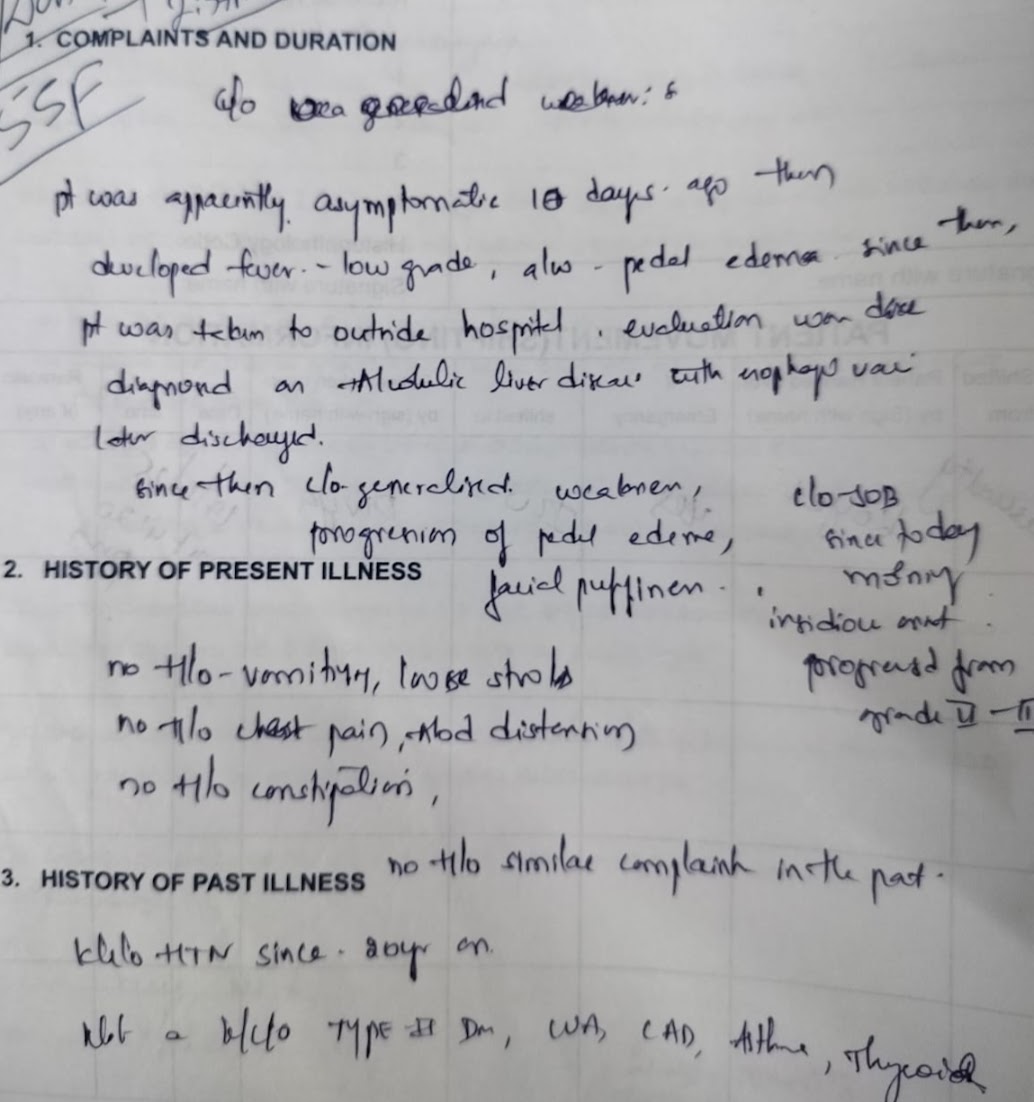 1. COMPLAINTS AND DURATION
SSF
c/o generalised weakness
pt was apparently asymptomatic 10 days ago then
developed fever - low grade, also - pedal edema since then,
pt was taken to outside hospital, evaluation was done
diagnosed as Alcoholic liver disease with
later discharged.
since then c/o generalised weakness,
progression of pedal edema,
facial puffiness.
c/o SOB
since today
morning
insidious onset.
progressed from
grade II - III
2. HISTORY OF PRESENT ILLNESS
no H/o - vomiting, loose stools
no H/o chest pain, Abd distention
no H/o constipation,
3. HISTORY OF PAST ILLNESS
no H/o similar complaints in the past.
k/c/o HTN since 20yr on
Not a k/c/o TYPE II DM, CVA, CAD, Asthma, Thyroid